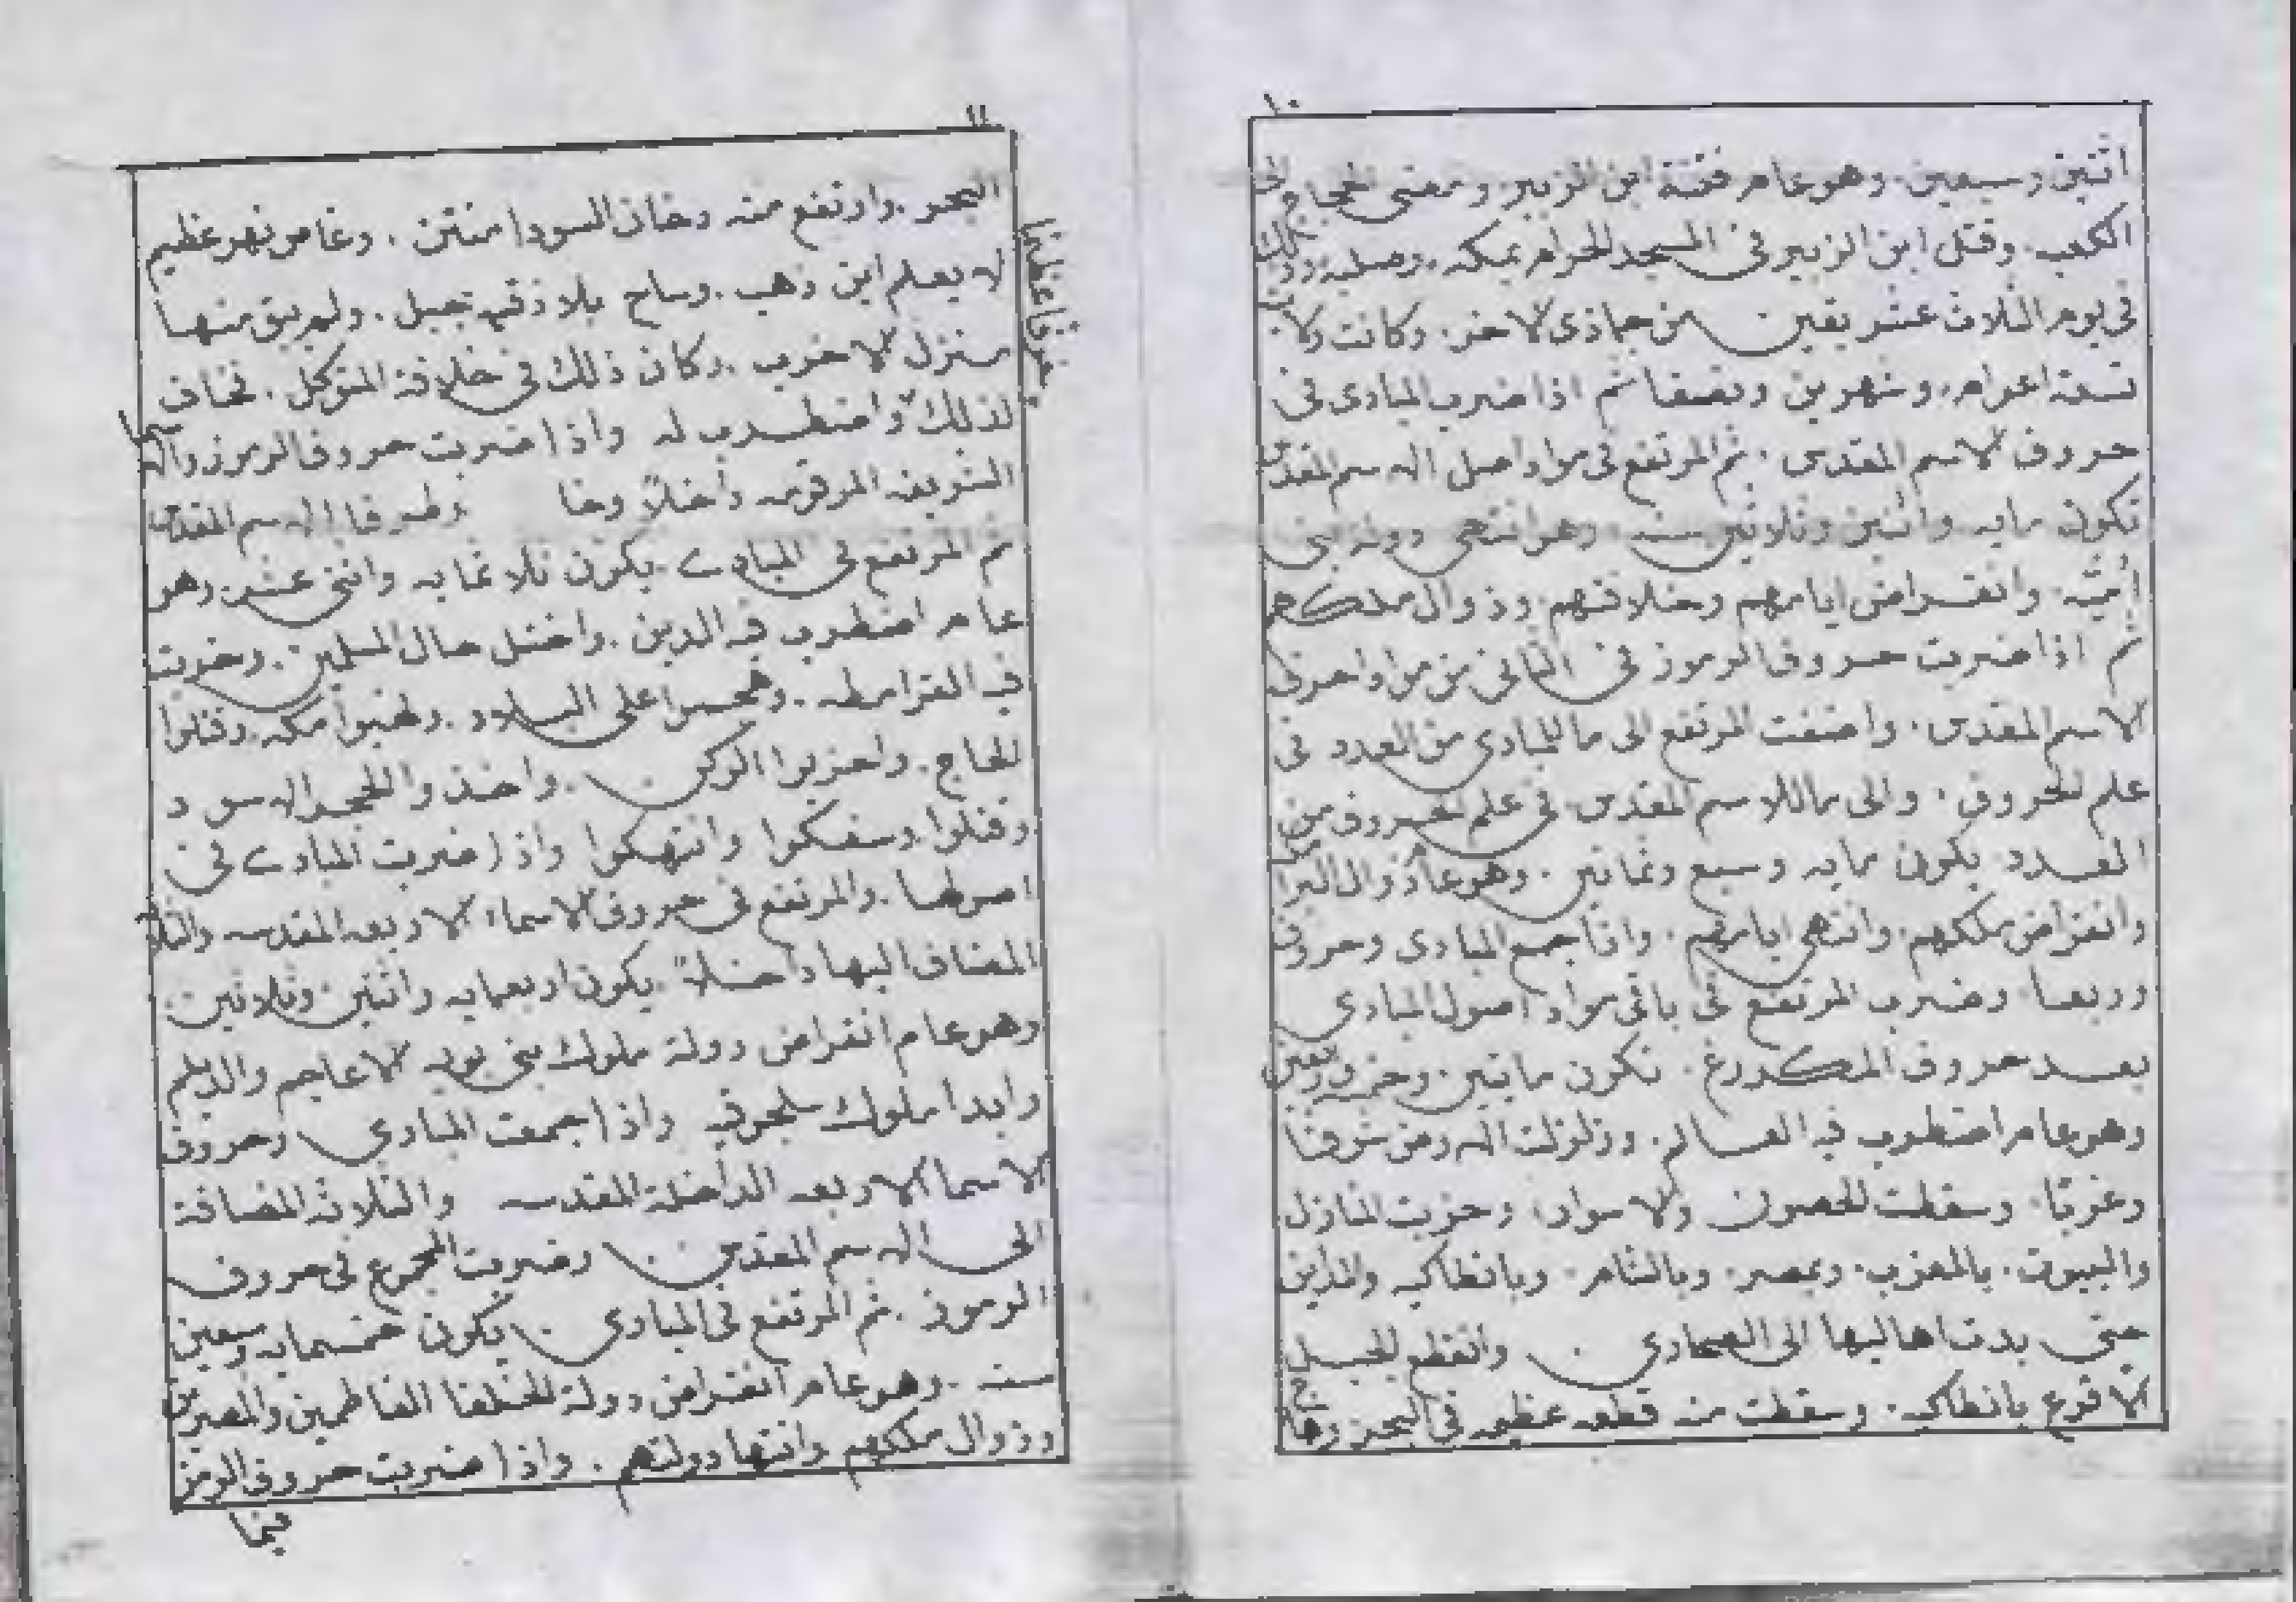 ١٠
اثنين وسبعين. وهو عام فتنة ابن الزبير ومضى الحجاج الى
الكعبه. وقتل ابن الزبير فى المسجد الحرام بمكه. وصلبه وذلك
فى يوم الثلاث عشر بقين من جماذى الاخر. وكانت ولايته
تسعة اعوام. وشهرين ونصفا ثم اذا ضرب المبادى فى
حروف الاسم المقدس. ثم المرتفع فى مواد اصل الاسم المقدس
تكون مايه واثنين وثلاثين سنه وهو انتهى دولة بنى
أميّه. وانقراض ايامهم وخلافتهم. وذوال ملكهم
ثم اذا ضربت حروف الرموز فى الثانى من مواد احرف
الاسم المقدس. واضفت المرتفع الى ما للمبادى من العدد فى
علم الحروف. والى ما للاسم المقدس. فى علم الحروف من
العدد يكون مايه وسبع وثمانين. وهو عام ذوال البرامكه
وانقراض ملكهم. وانتهى ايامهم. واذا جمع المبادى وحروف
وربعها. وضرب المرتفع فى باقى مواد اصول المبادى
بعد حروف المكررغ. تكون مايتين. وخمسه واربعين
وهو عام اضطرب فيه العالم. وزلزلت الارض شرقا
وغربًا. وسقطت الحصون والاسوار، وخربت المنازل
والبيوت. بالمغرب. وبمصر. وبالشام. وبانطاكيه والمداين
حتى بدت اهاليها الى الصحارى. وانقطع الجبل
الاقرع بانطاكيه. وسقطت منه قطعه عظيمه فى البحر وهاج
١١
البحر. وارتفع منه دخان اسودا منتن. وغامر نهر عظيم
لا يعلم اين ذهب. وساح بلاذقيه جبيل. ولم يبق منها
منزل الا خرب. وكان ذلك فى خلافة المتوكل. فخاف
لذلك واضطرب له واذا ضربت حروف الرموز والاسما
الشريفه المرقومه داخلاً وخا وطرفا الاسم المقدس
ثم المرتفع فى المبادى يكون ثلاثمايه واثنى عشر. وهو
عام اضطرب فيه الدين. واختل حال المسلمين. وخربت
فيه القرامطه. وهجموا على البلاد. وطنبوا مكه. وقتلوا
الحاج. واخربوا الركن. واخذوا الحجر الاسود
وقتلوا. وسفكوا وانتهكوا واذا ضربت المبادى فى
اصولها. والمرتفع فى حروف الاسماء الاربعه المقدسه والثلاثه
المضاف اليها داخلاً. يكون اربعمايه واثنين وثلاثين.
وهو عام انقراض دولة ملوك بنى بويه الاعاجم والديلم
وابدا ملوك سلجوقيه واذا جمعت المبادى وحروف
الاسما الاربعه الداخلة المقدسه والثلاثه المضافة
الى الاسم المقدس. وضربت المجموع فى حروف
الرموز. ثم المرتفع فى المبادى. يكون خمسمايه وسبعين
سنه. وهو عام انقراض دولة الخلفا الفاطمين والمصرين
وذوال ملكهم وانتها دولتهم. واذا ضربت حروف الرمز
فيما